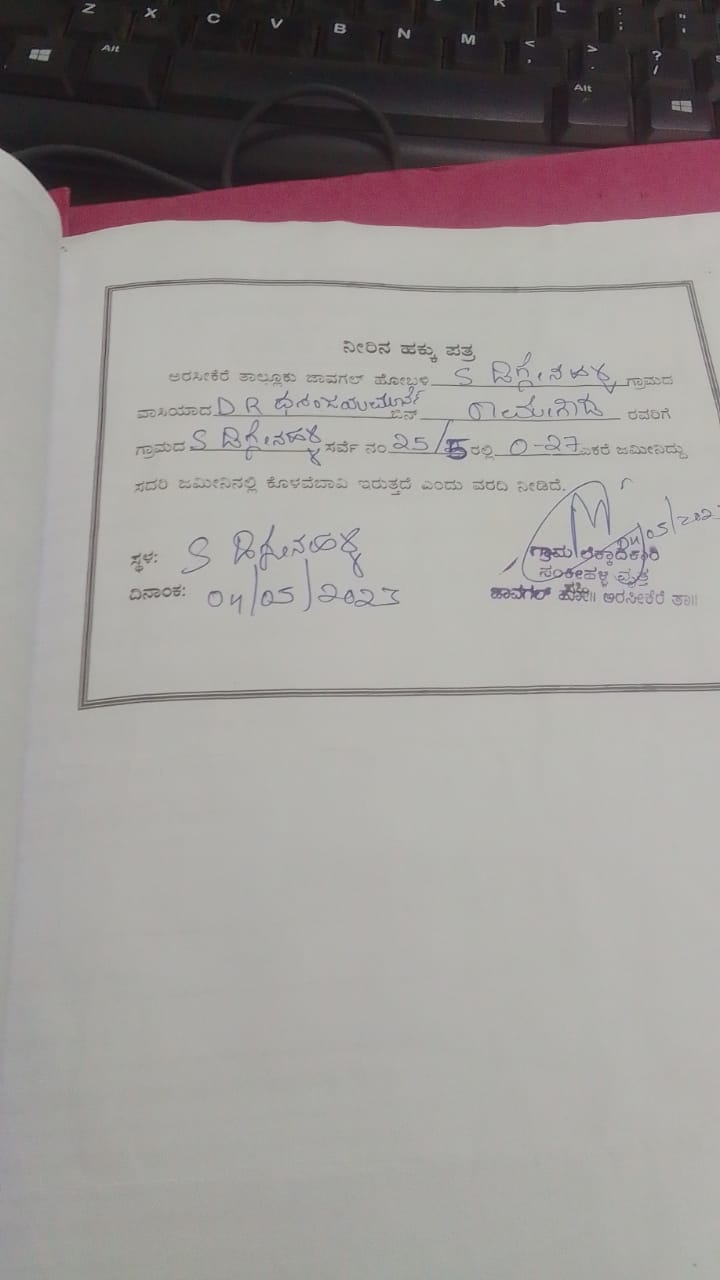 Z X C V B N M < , > . ? /
Alt Alt
ನೀರಿನ ಹಕ್ಕು ಪತ್ರ
ಅರಸೀಕೆರೆ ತಾಲ್ಲೂಕು ಜಾವಗಲ್ ಹೋಬ್ಳಳಿ S ದಿಗ್ಗೇನಹಳ್ಳಿ ಗ್ರಾಮದ
ವಾಸಿಯಾದ D R ಧನಂಜಯಮೂರ್ತಿ ಬಿನ್ ರಾಮೇಗೌಡ ರವರಿಗೆ
ಗ್ರಾಮದ S ದಿಗ್ಗೇನಹಳ್ಳಿ ಸರ್ವೆ ನಂ 25/5 ರಲ್ಲಿ 0-27 ಎಕರೆ ಜಮೀನಿದ್ದು
ಸದರಿ ಜಮೀನಿನಲ್ಲಿ ಕೊಳವೆಬಾವಿ ಇರುತ್ತದೆ ಎಂದು ವರದಿ ನೀಡಿದೆ.
ಸ್ಥಳ: S ದಿಗ್ಗೇನಹಳ್ಳಿ
ದಿನಾಂಕ: 04/05/2023
04/05/202
ಗ್ರಾಮ ಲೆಕ್ಕಾಧಿಕಾರಿ
ಸಂಕೀಹಳ್ಳಿ ವೃತ್ತ
ಜಾವಗಲ್ ಹೋ॥ ಅರಸೀಕೆರೆ ತಾ॥